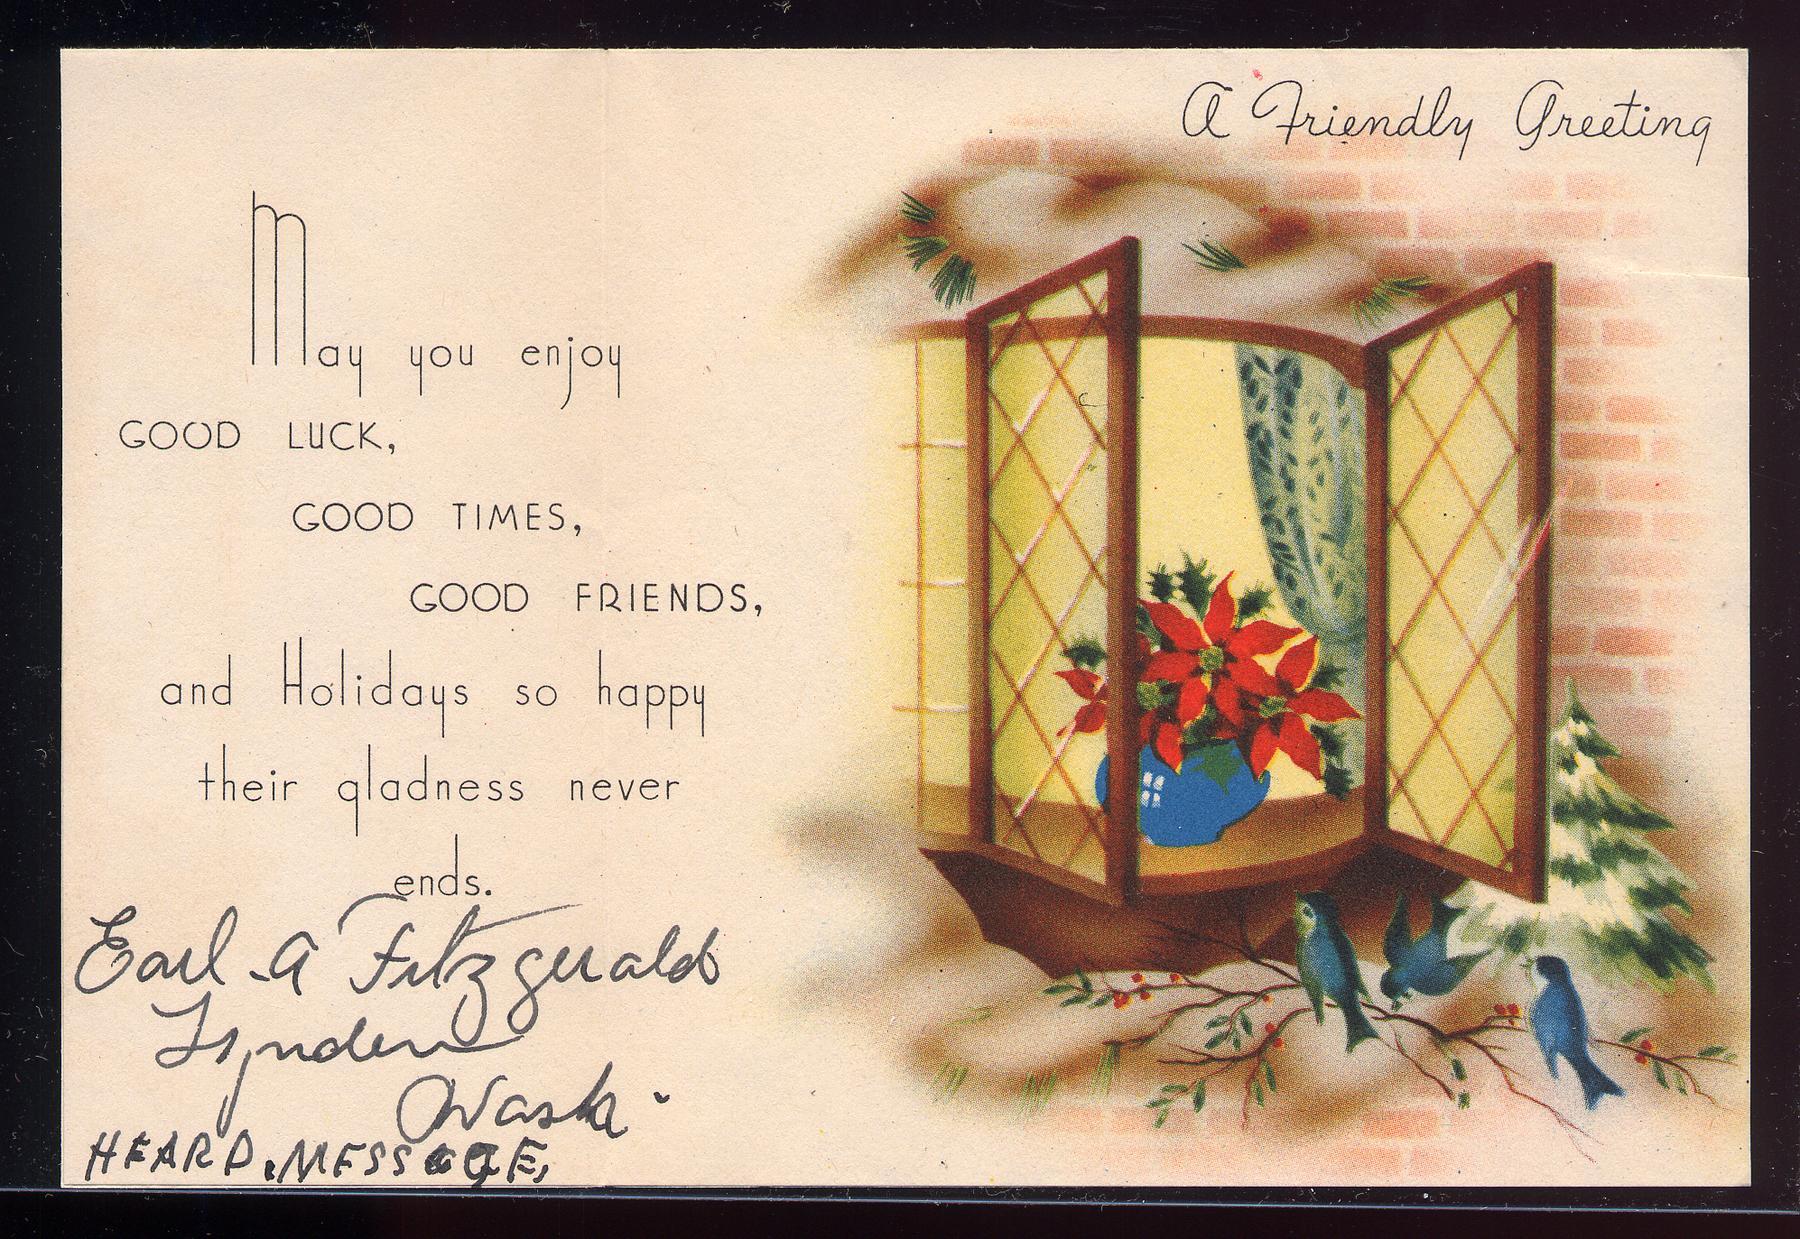 A Friendly Greeting
May you enjoy
GOOD LUCK,
GOOD TIMES,
GOOD FRIENDS,
and Holidays so happy
their gladness never
ends.
Earl A Fitzgerald
Lynden
Wash.
HEARD. MESSAGE,